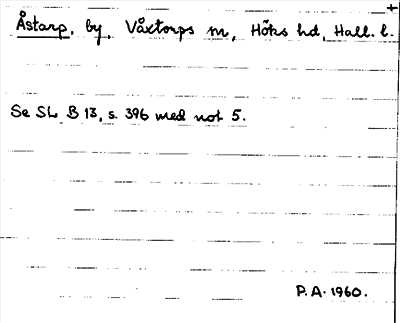 Åstarp, by, Våxtorps sn, Höks hd, Hall. l.
Se SL B 13, s. 396 med not 5.
P.A. 1960.